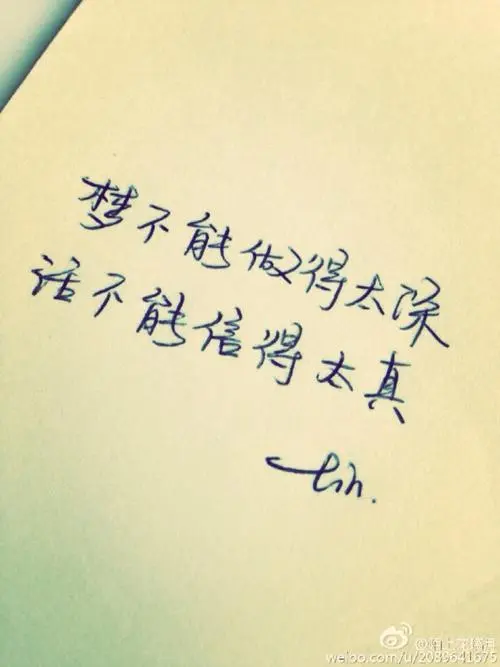 梦不能做得太深
话不能信得太真
lin.
weibo.com/u/2089641675